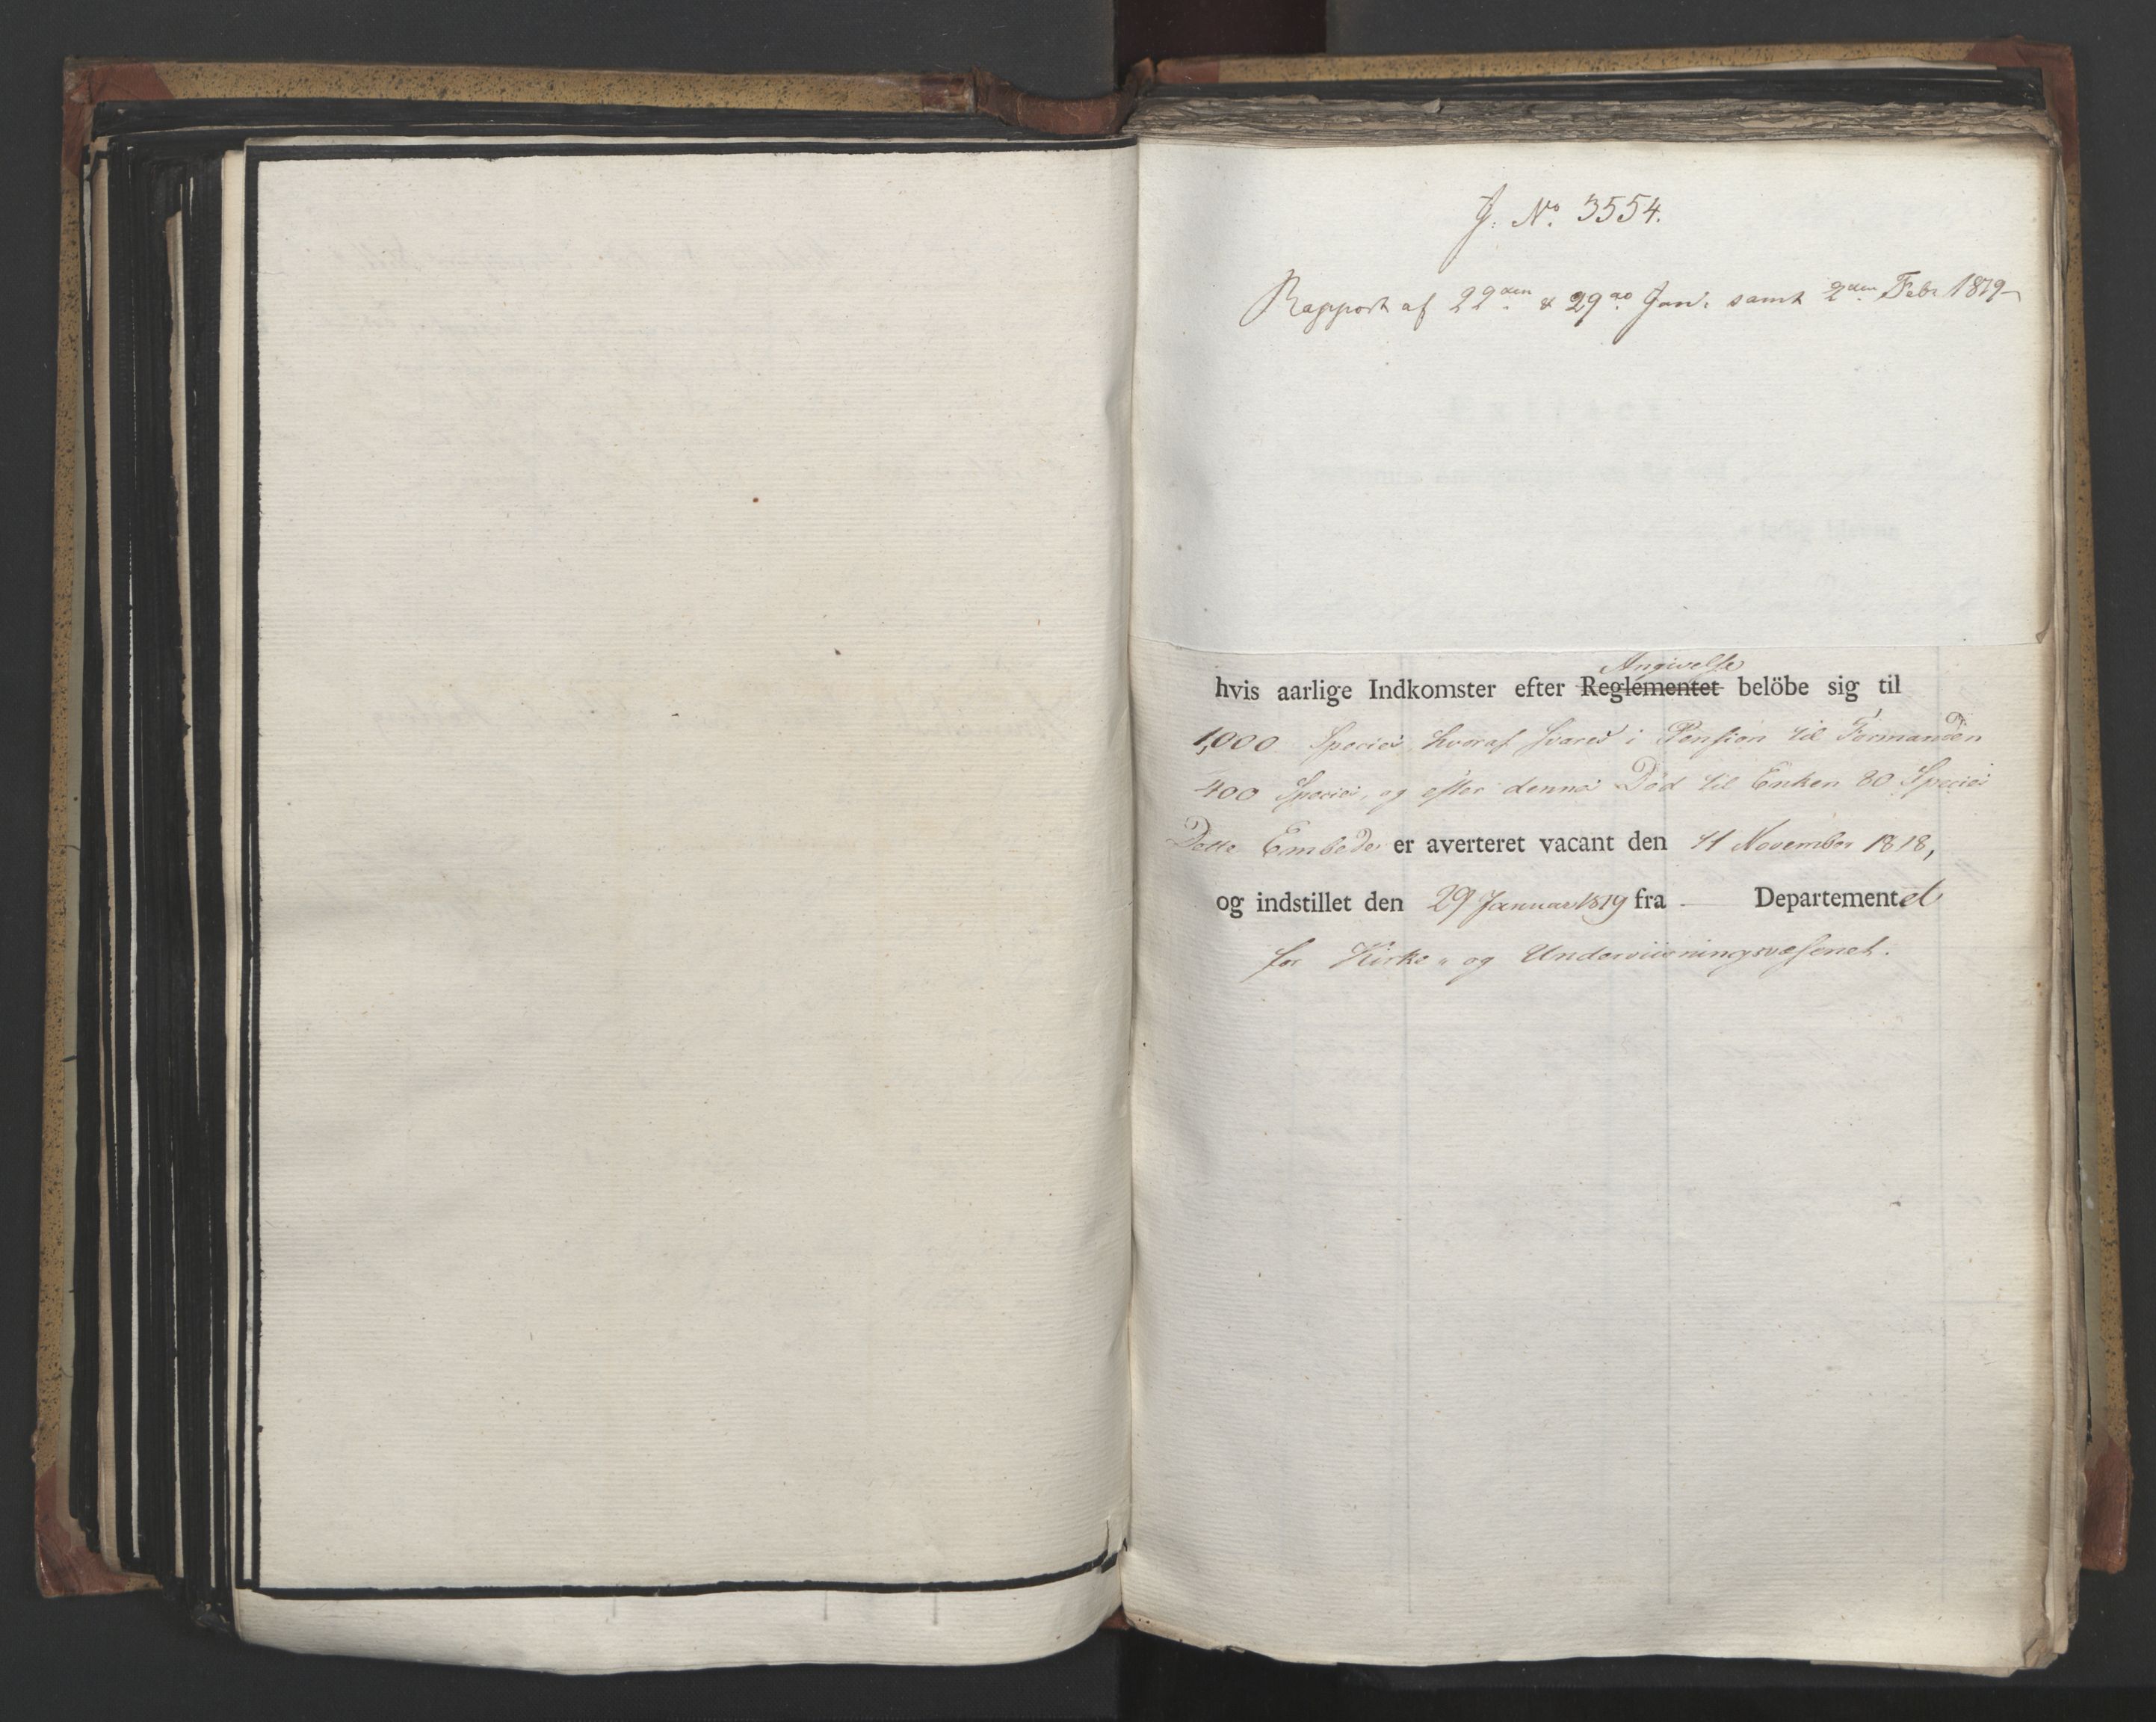 J. No. 3554.
Rapport af 22den & 29de Jan: samt 2den Febr 1819
Angivelse
hvis aarlige Indkomster efter Reglementet belöbe sig til
1,000 Species hvoraf svares i Pension til Formanden
400 Species, og efter dennes Död til Enken 80 Species
Dette Embede er averteret vacant den 11 November 1818,
og indstillet den 29 Januar 1819 fra - Departementet
for Kirke- og Underviisningsvæsenet.